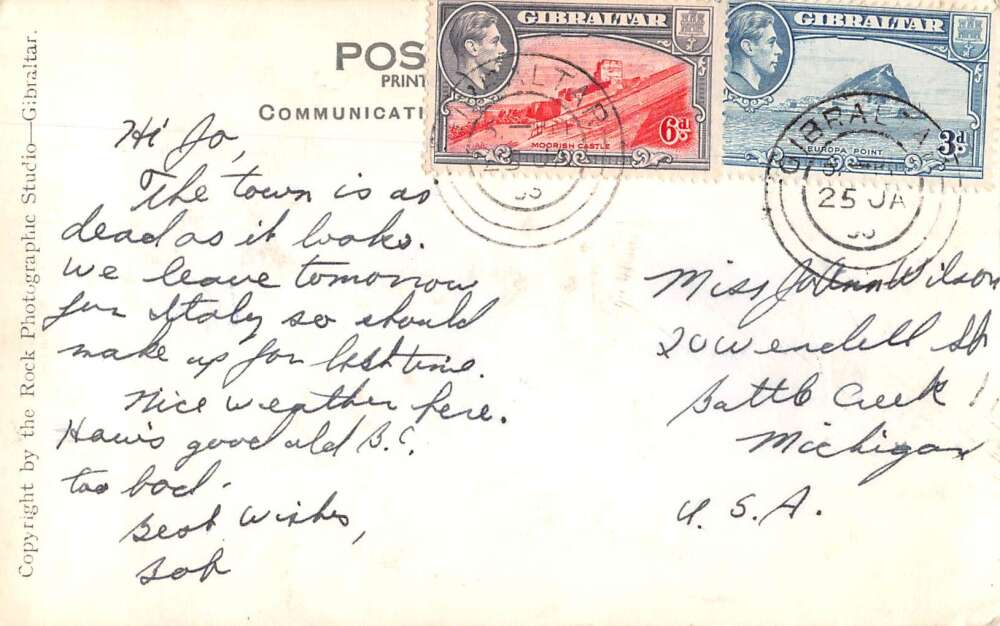 POS
PRINT
COMMUNICATI
GIBRALTAR
6d
MOORISH CASTLE
GIBRALTAR
3d
EUROPA POINT
GIBRALTAR
IBRALTA
25 JA
Hi Jo,
The town is as
dead as it looks.
We leave tomorrow
for Italy so should
make up for lost time.
Nice weather here.
How's good old B.C.
too bad.
Best Wishes,
Bob
Miss JoAnn Wilson
20 Wendell St
Battle Creek
Michigan
U.S.A.
Copyright by the Rock Photographic Studio—Gibraltar.